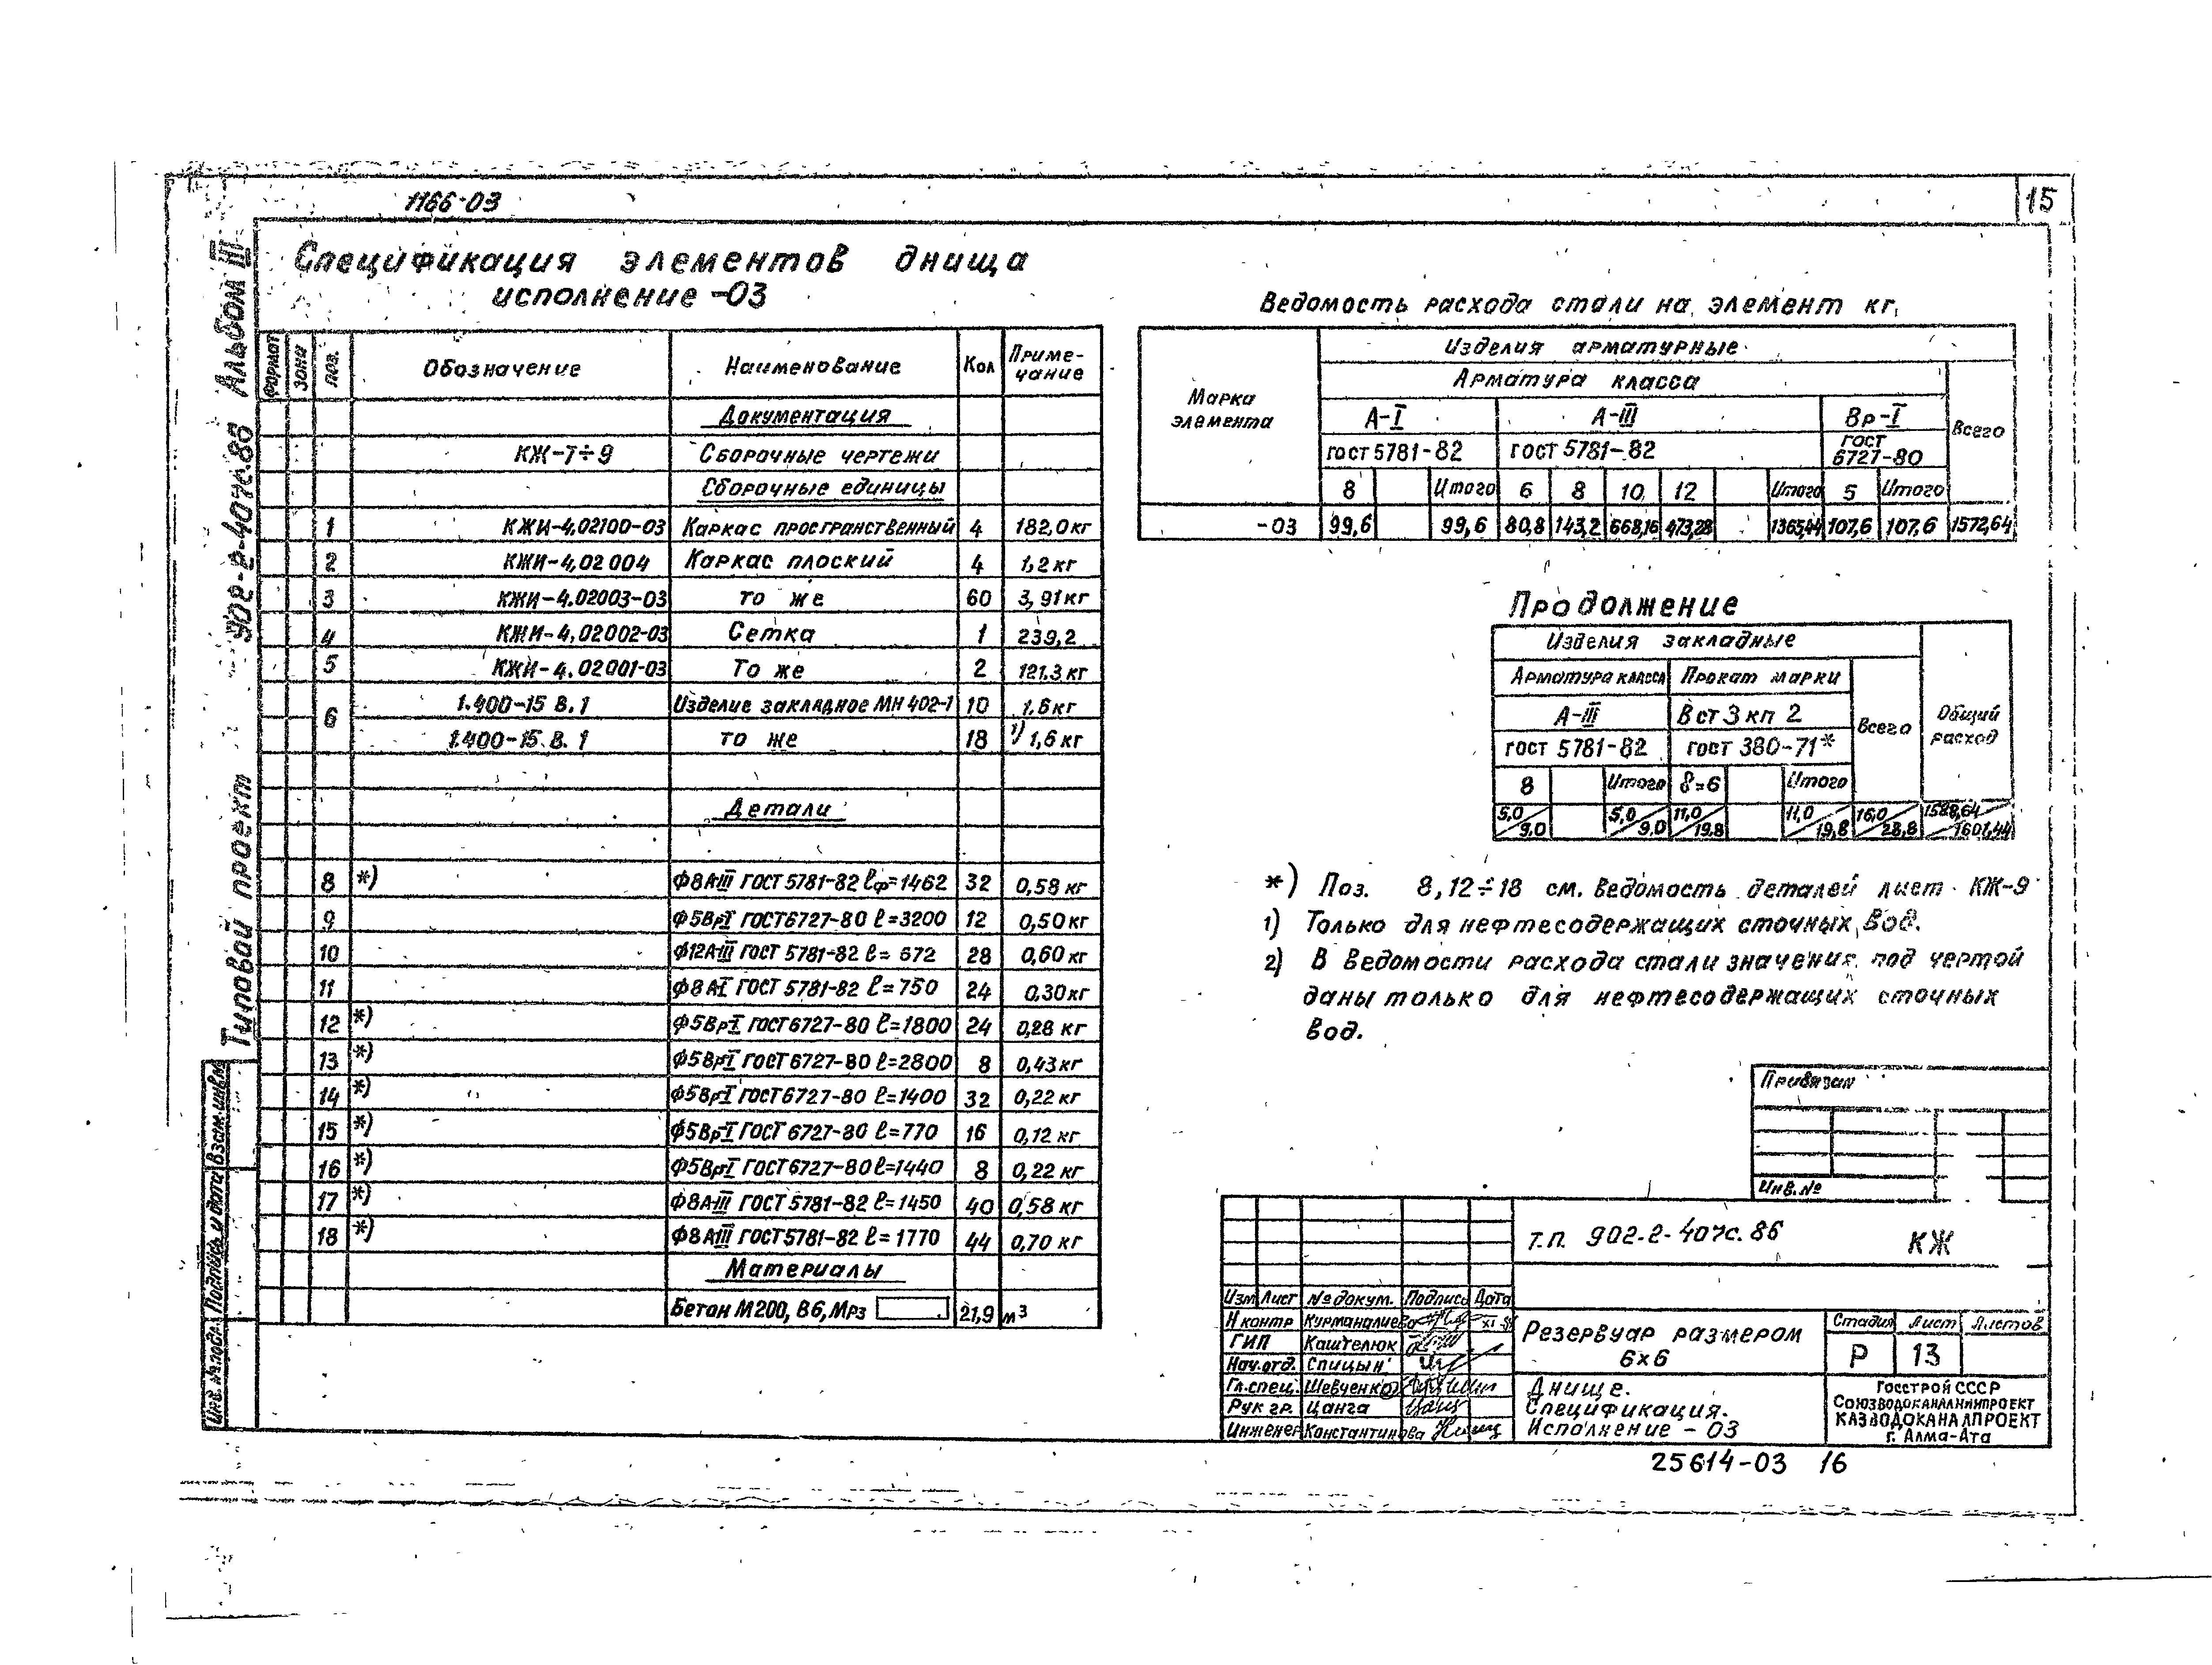 1166-03
15
Типовой проект 902-2-407с.86 Альбом III
Спецификация элементов днища
исполнение -03
Формат Зона Поз. Обозначение Наименование Кол Примечание
Документация
КЖ-7÷9 Сборочные чертежи
Сборочные единицы
1 КЖИ-4.02100-03 Каркас пространственный 4 182,0кг
2 КЖИ-4,02 004 Каркас плоский 4 1,2 кг
3 КЖИ-4.02003-03 то же 60 3,91кг
4 КЖИ-4,02002-03 Сетка 1 239,2
5 КЖИ-4.02001-03 То же 2 121.3 кг
6 1.400-15 В.1 Изделие закладное МН 402-1 10 1.6кг
1.400-15.В.1 то же 18 1) 1,6 кг
Детали
8 *) Ф8АIII ГОСТ 5781-82 ℓф=1462 32 0,58 кг
9 Ф5ВрI ГОСТ6727-80 ℓ=3200 12 0,50кг
10 Ф12АIII ГОСТ 5781-82 ℓ= 672 28 0,60 кг
11 Ф8 АI ГОСТ 5781-82 ℓ=750 24 0,30кг
12 *) Ф5ВрI ГОСТ6727-80 ℓ=1800 24 0,28 кг
13 *) Ф5ВрI ГОСТ6727-80 ℓ=2800 8 0,43кг
14 *) Ф5ВрI ГОСТ6727-80 ℓ=1400 32 0,22 кг
15 *) Ф5ВрI ГОСТ 6727-80 ℓ=770 16 0,12 кг
16 *) Ф5ВрI ГОСТ6727-80 ℓ=1440 8 0,22 кг
17 *) Ф8АIII ГОСТ 5781-82 ℓ=1450 40 0,58 кг
18 *) Ф8АIII ГОСТ5781-82 ℓ=1770 44 0,70 кг
Материалы
Бетон М200, В6, Мрз 21,9 м³
Ведомость расхода стали на элемент кг,
Марка элемента
Изделия арматурные
Арматура класса
А-I А-III Вр-I Всего
гост 5781-82 гост 5781-82 гост 6727-80
8 Итого 6 8 10 12 Итого 5 Итого
-03 99,6 99,6 80,8 143,2 668,16 473,28 1365,44 107,6 107,6 1572,64
Продолжение
Изделия закладные
Арматура класса Прокат марки
А-III Вст3кп 2 Всего Общий расход
гост 5781-82 гост 380-71*
8 Итого δ=6 Итого
5,0/9.0 5,0/9.0 11,0/19.8 11,0/19,8 16,0/28,8 1588,64/1601,44
*) Поз. 8,12÷18 см. ведомость деталей лист КЖ-9
1) Только для нефтесодержащих сточных вод.
2) В ведомости расхода стали значения под чертой
даны только для нефтесодержащих сточных
вод.
Привязан
Инв.№
Т.П. 902-2-407с.86 КЖ
Изм Лист № докум. Подпись Дата
Н контр Курманалиева
ГИП Каштелюк
Нач.отд. Спицын
Гл.спец. Шевченко
Рук гр. Цанга
Инженер Константинова
Резервуар размером
6×6
Стадия Лист Листов
Р 13
Днище.
Спецификация.
Исполнение - 03
Госстрой СССР
Союзводоканалниипроект
КАЗВОДОКАНАЛПРОЕКТ
г. Алма-Ата
25614-03 16
Инв.№подл. Подпись и дата Взам.инв.№